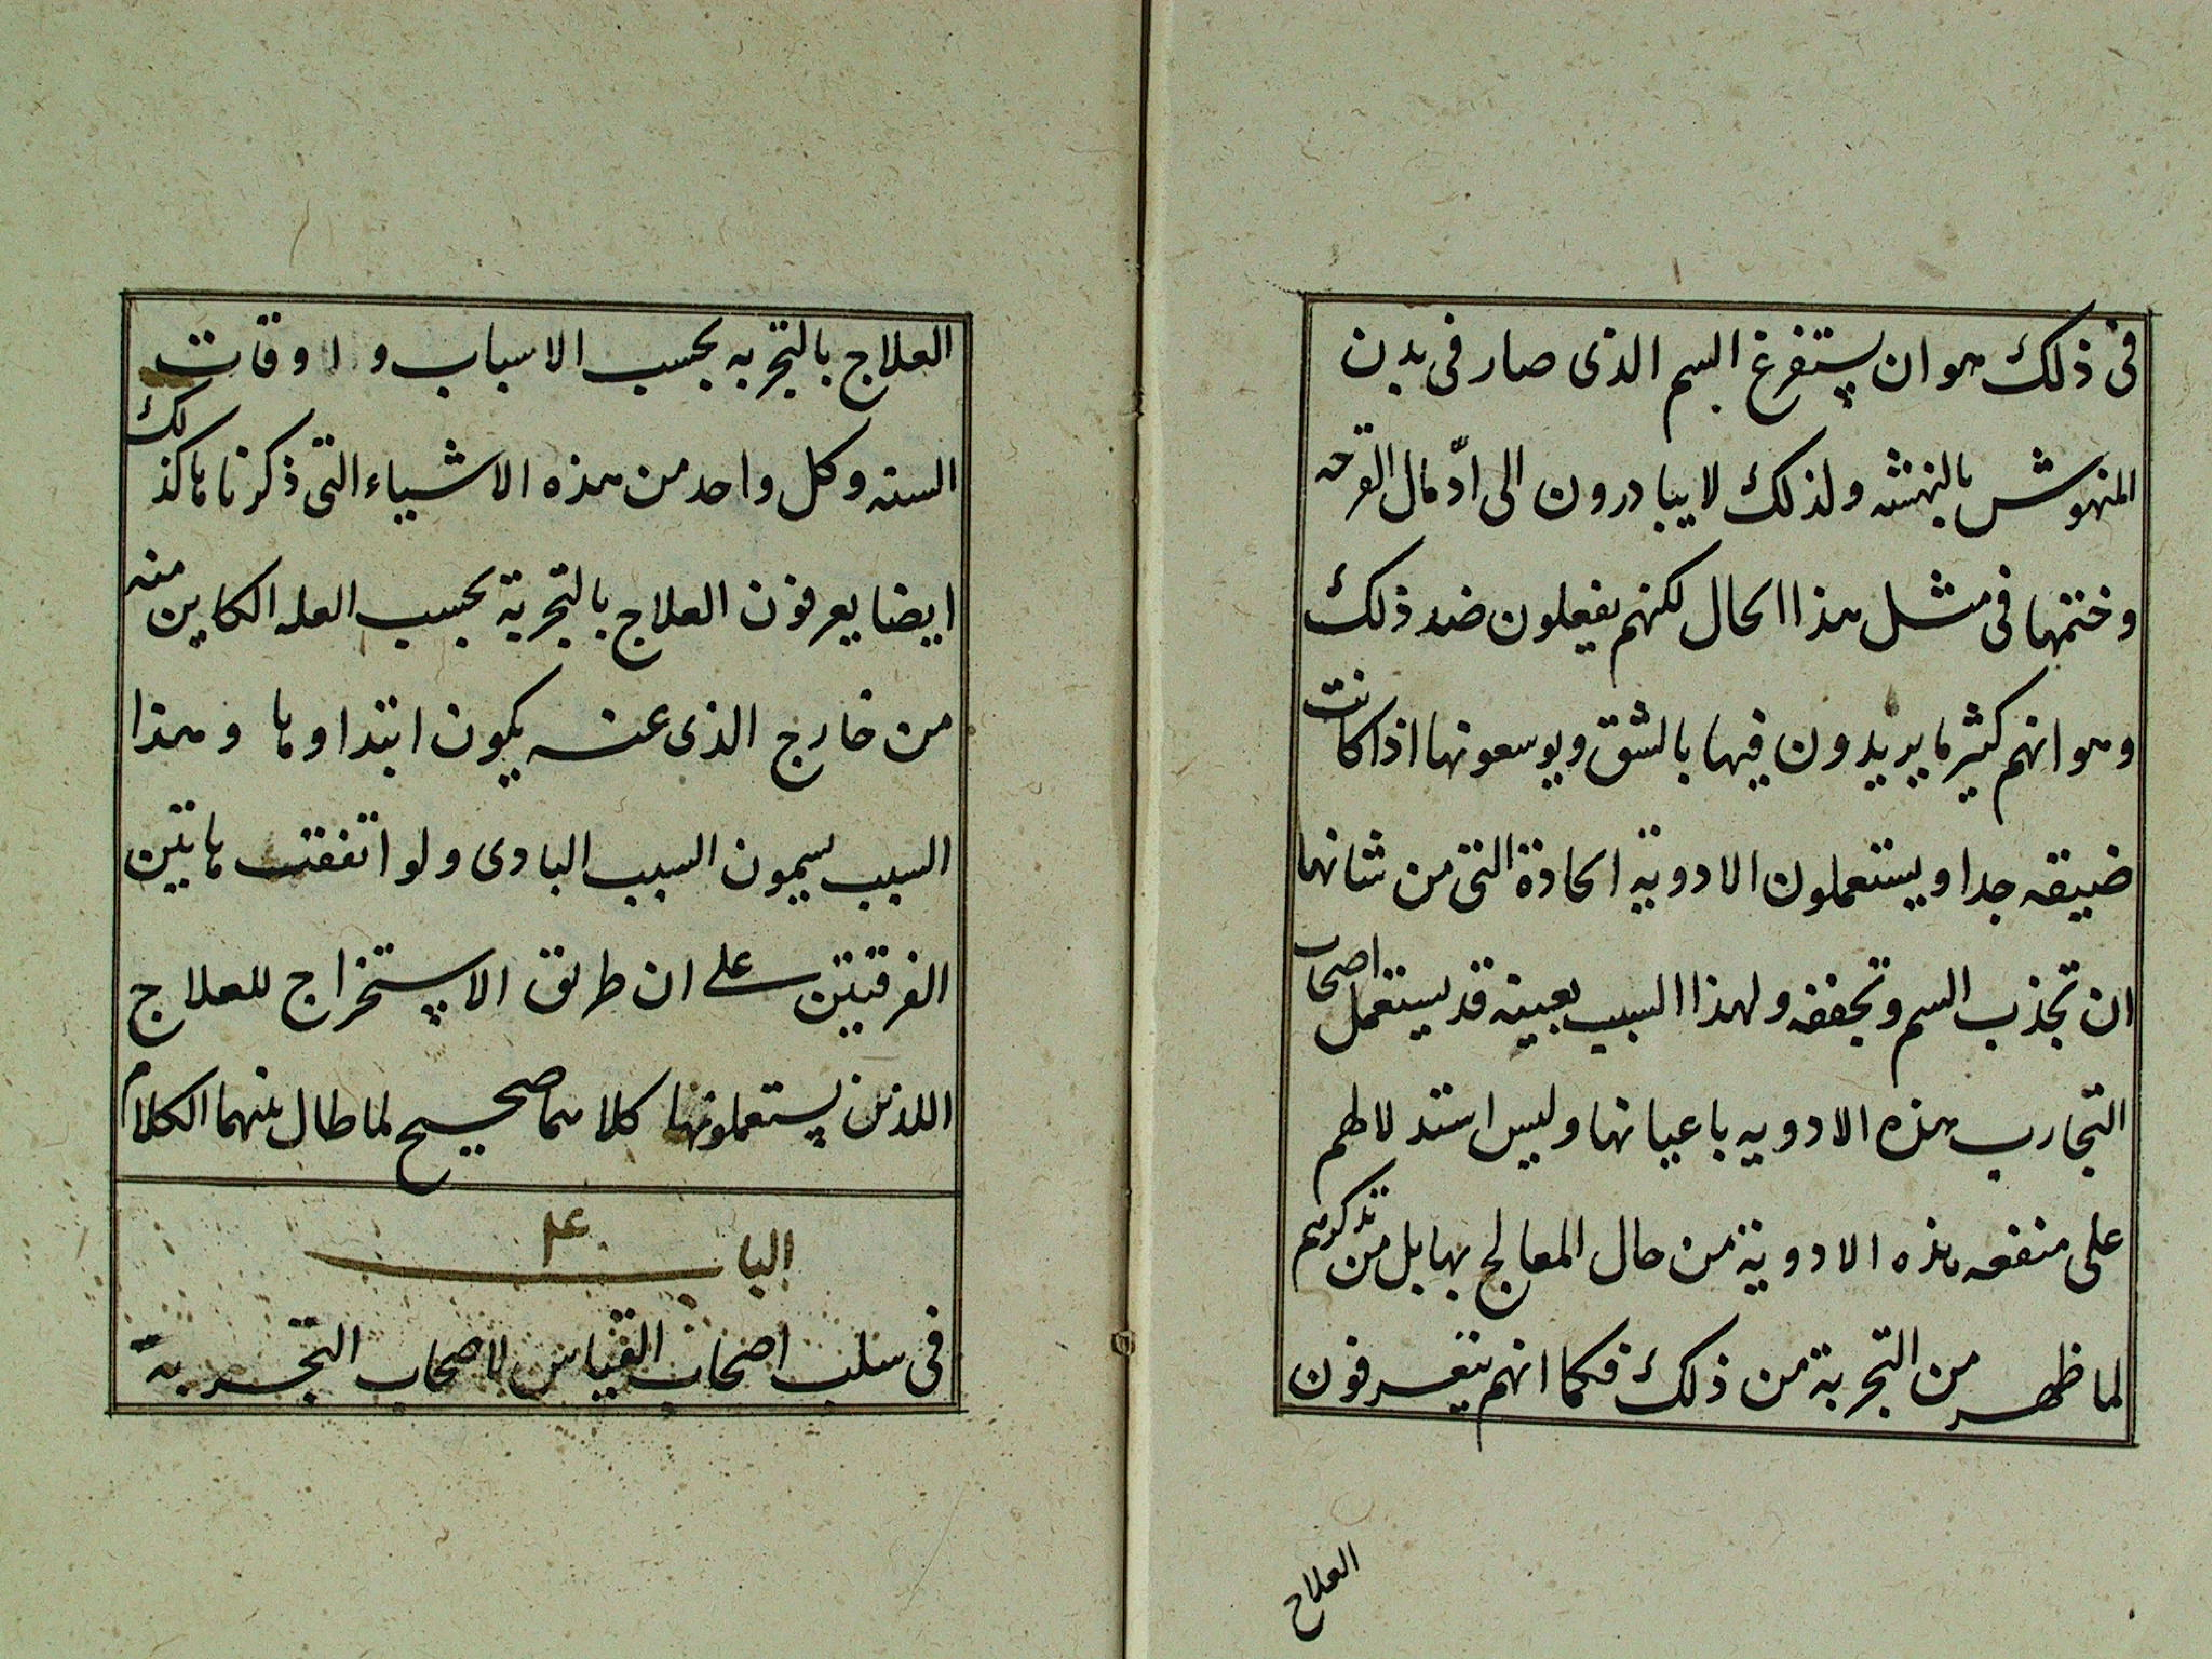 فى ذلك هو ان يستفرغ السم الذى صار فى بدن
المنهوش بالنهشه ولذلك لا يبادرون الى ادّمال القرحه
وختمها فى مثل هذا الحال لكنهم يفعلون ضد ذلك
وهو انهم كثير ما يريدون فيها بالشق ويوسعونها اذا كانت
ضيقه جدا ويستعملون الادوية الحادة التى من شانها
ان تجذب السم وتجففه ولهذا السبب بعينه قد يستعمل اصحاب
التجارب هذه الادويه باعيانها وليس استدلالهم
على منفعه هذه الادوية من حال المعالج بها بل من تذكرهم
لما ظهر من التجربة من ذلك فكما انهم يتعرفون
العلاج
العلاج بالتجربه بحسب الاسباب و اوقات
السنه وكل واحد من هذه الاشياء التى ذكرناها كذلك
ايضا يعرفون العلاج بالتجربة بحسب العله الكاين منه
من خارج الذى عنه يكون ابتداوها وهذا
السبب يسمون السبب البادى ولو اتفقت هاتين
الفرقتين على ان طريق الاستخراج للعلاج
اللذين يستعملونها كلاهما صحيح لما طال بينهما الكلام
الباب ۴
فى سلب اصحاب القياس لاصحاب التجربة